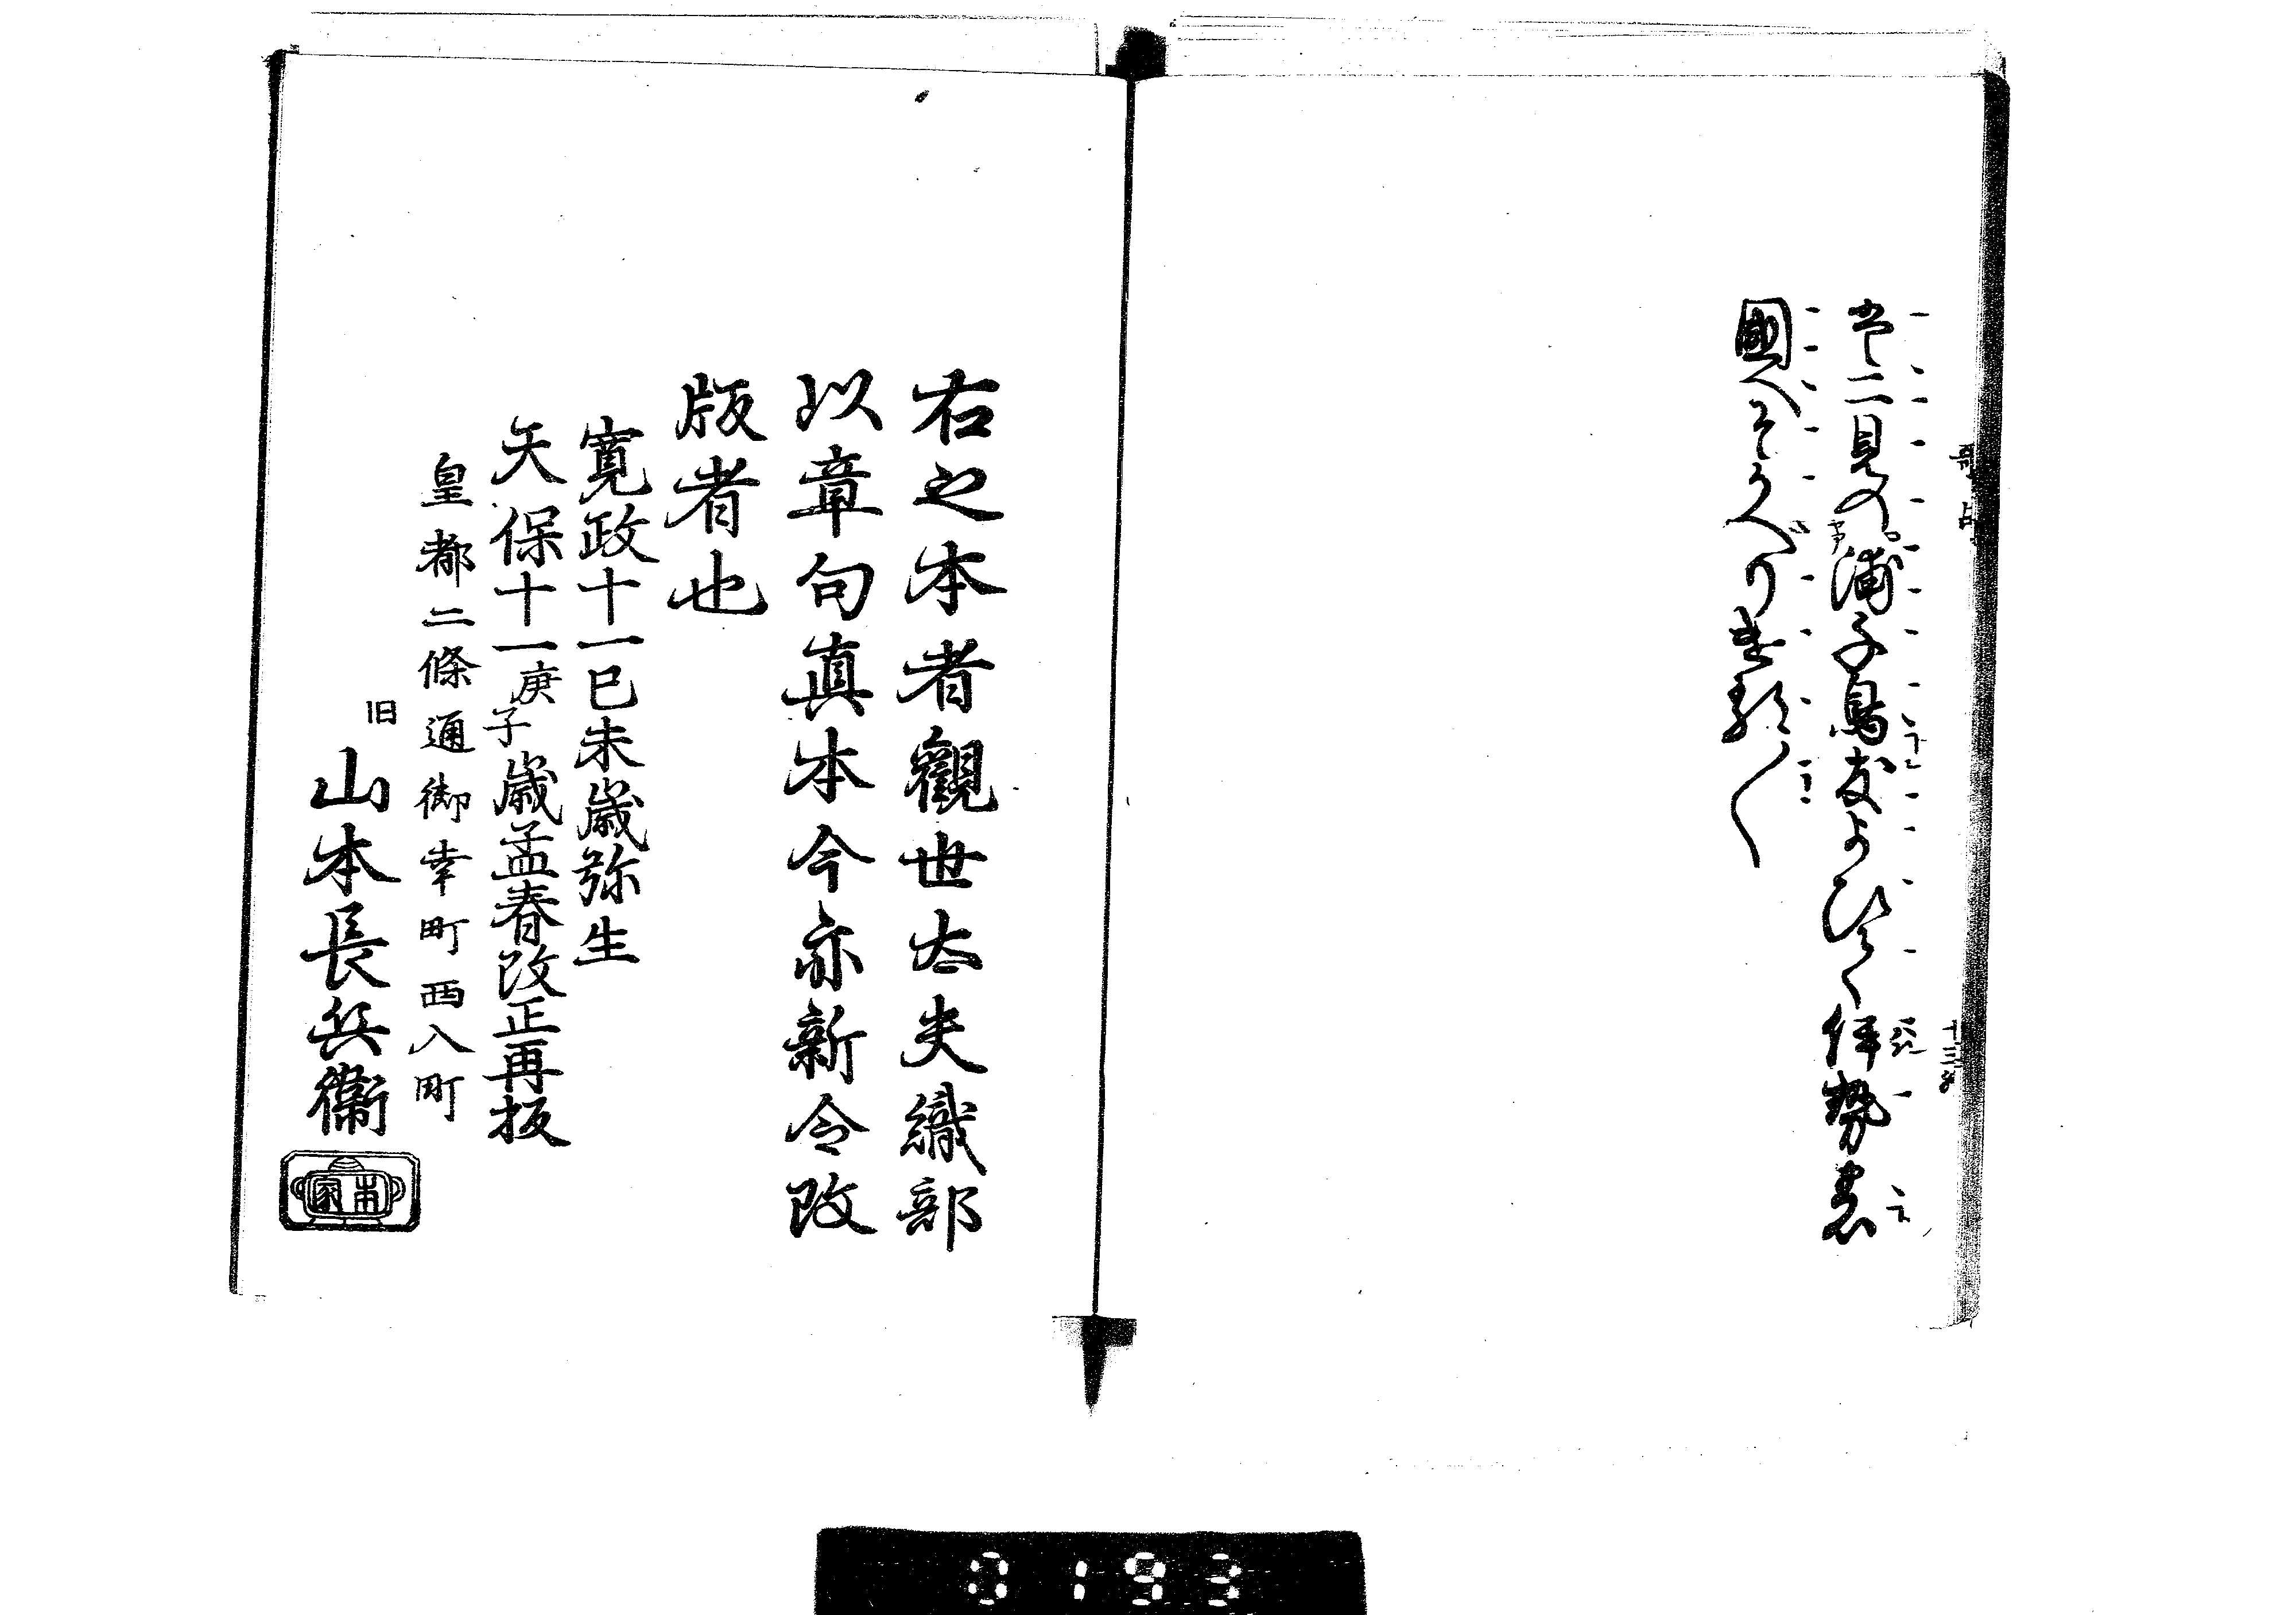 哥占
十三終
二見の浦千鳥友よひて伊勢の
國へそかへりける〳〵
右之本者觀世太夫織部
以章句真本今亦新令改
版者也
寛政十一巳未歳弥生
天保十一庚子歳孟春改正再板
皇都二條通御幸町西入町
旧 山本長兵衛
本家
0193